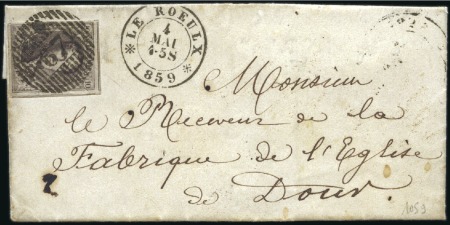 LE ROEULX
4
MAI
4-5S
1859
Monsieur
le Receveur de la
Fabrique de l'Eglise
de Dour.
1859